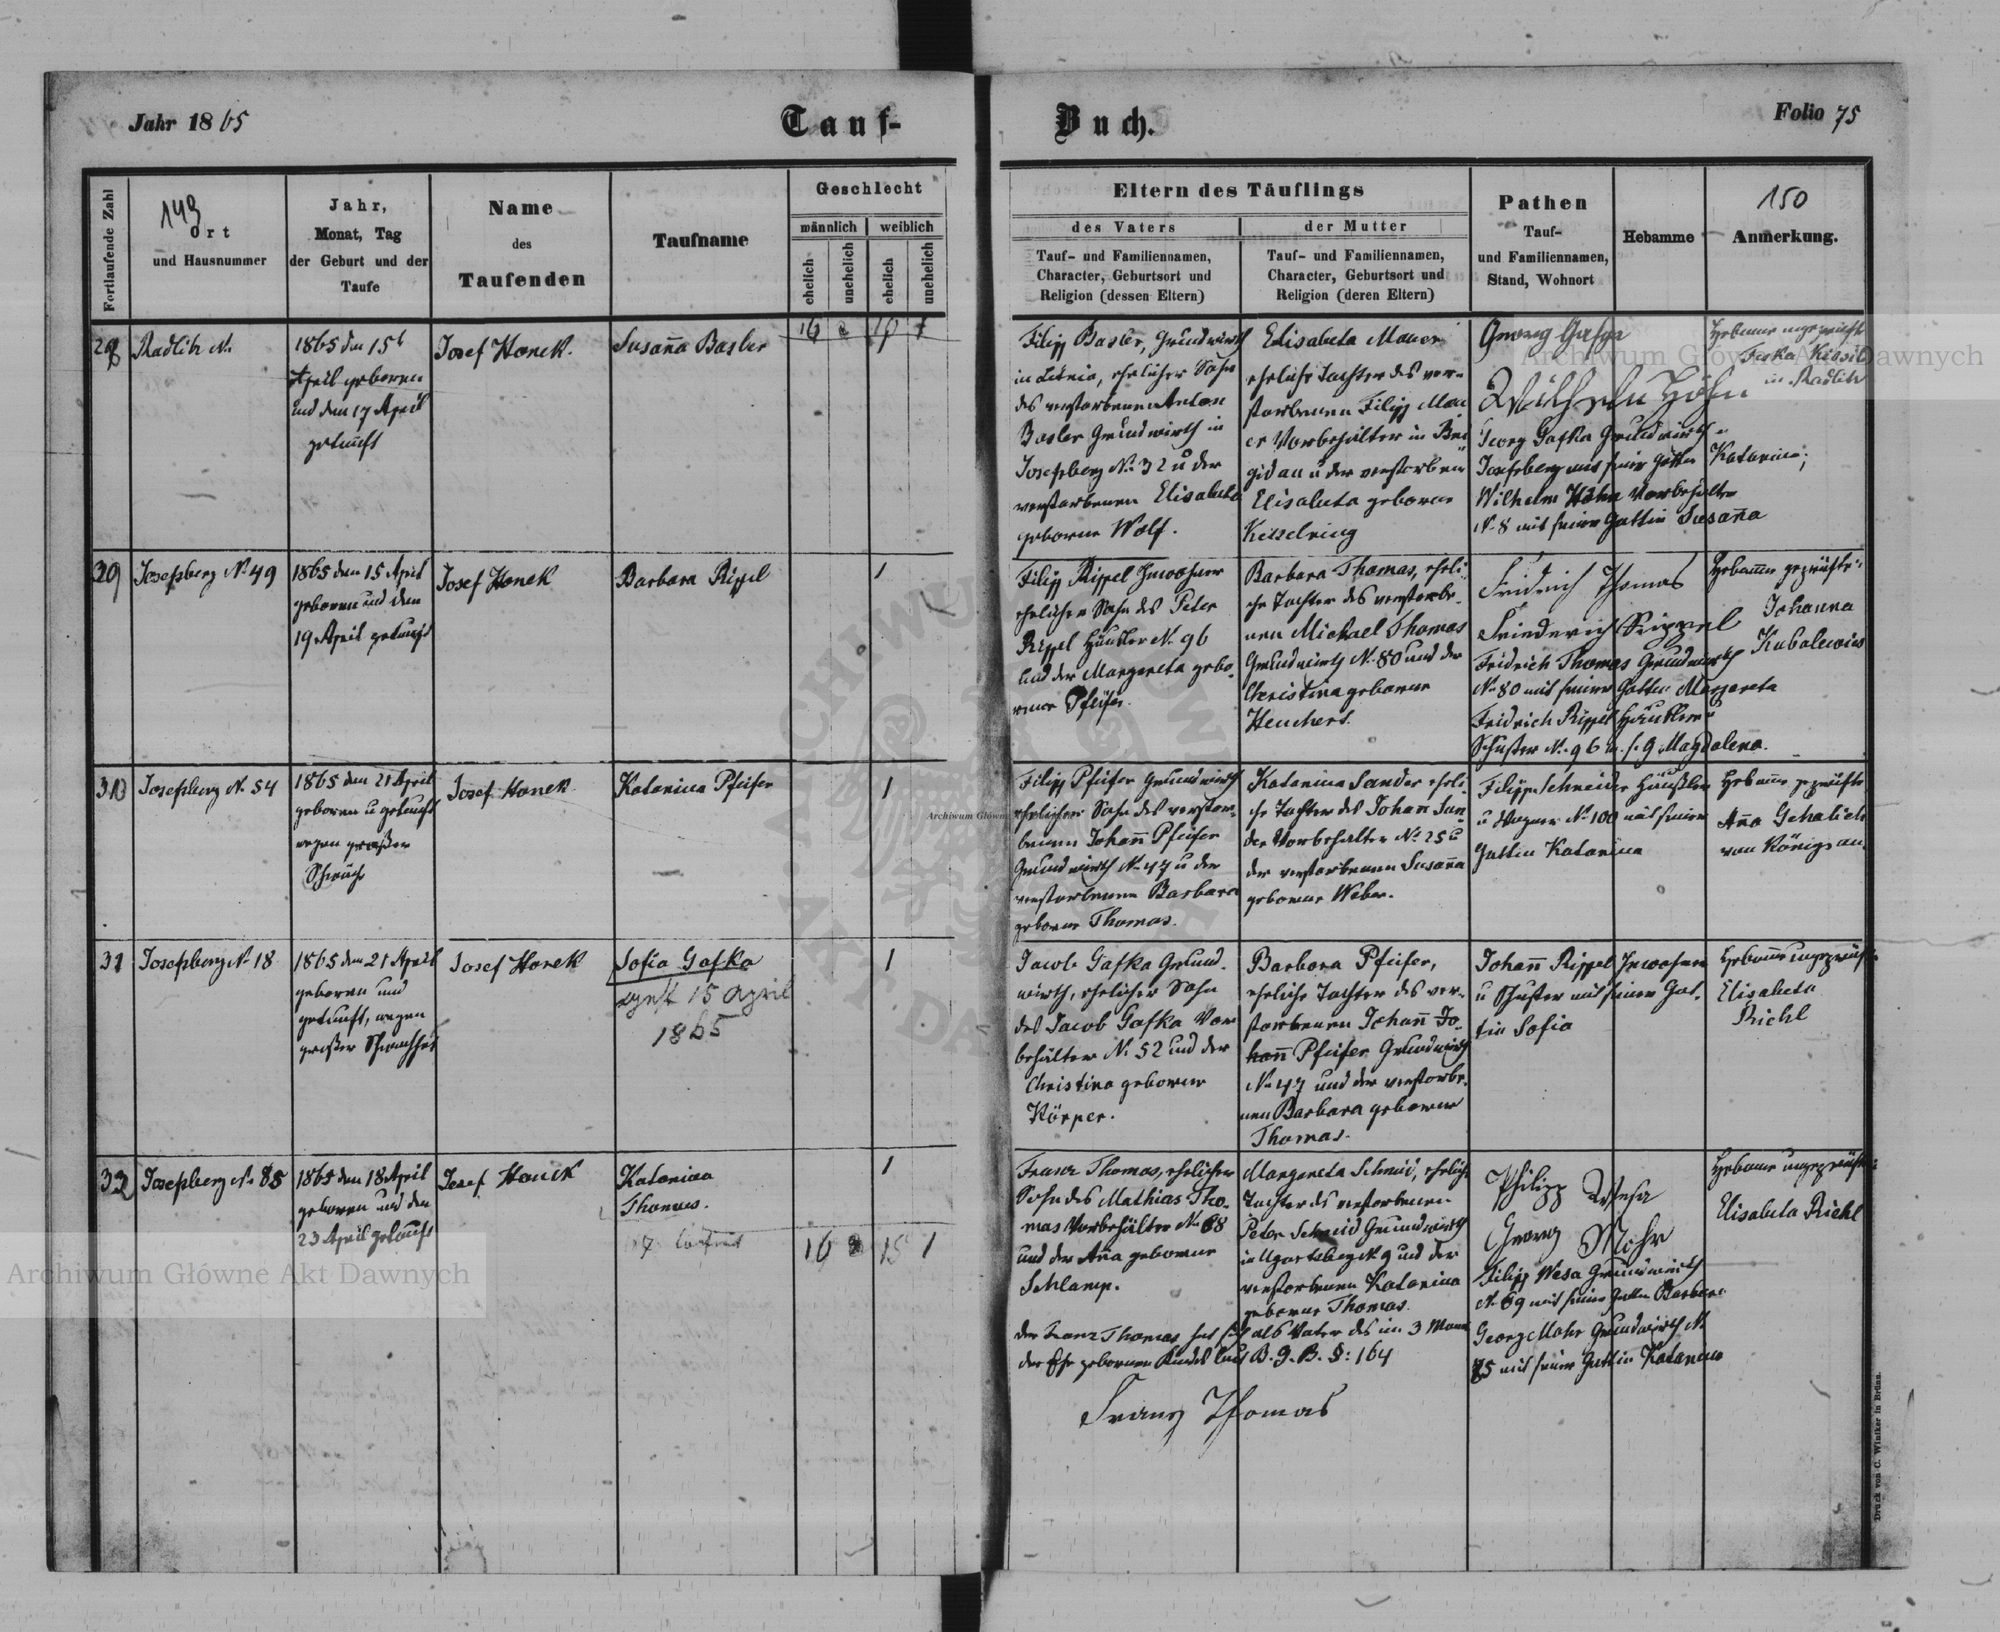 Jahr 1865
Tauf-
Buch.
Folio 75
Fortlaufende Zahl
149
Ort
und Hausnummer
Jahr,
Monat, Tag
der Geburt und der
Taufe
Name
des
Taufenden
Taufname
Geschlecht
männlich
weiblich
ehelich
unehelich
ehelich
unehelich
Eltern des Täuflings
des Vaters
Tauf- und Familiennamen,
Character, Geburtsort und
Religion (dessen Eltern)
der Mutter
Tauf- und Familiennamen,
Character, Geburtsort und
Religion (deren Eltern)
Pathen
Tauf-
und Familiennamen,
Stand, Wohnort
Hebamme
150
Anmerkung.
28
Radlitz N.
1865 den 15t
April geboren
und den 17 April
getauft
Josef Honek.
Susana Basler
16 2 10 1
Filipp Basler, Grundwirth
in Litnia, ehelicher Sohn
des verstorbenen Anton
Basler Grundwirth in
Josefsberg N. 32 u der
verstorbenen Elisabeta
geborne Wolf.
Elisabeta Mauer
eheliche Tochter des ver-
storbenen Filipp Mau
er Vorbehälter in Bri
gidau u der verstorbenen
Elisabeta geborne
Kisselring
Georg Gafga
Wilhelm Höhn
Georg Gafka Grundwirth in
Josefsberg mit seiner Gattin Katarina;
Wilhelm Höhn Vorbehälter
N. 8 mit seiner Gattin Susana
Hebame ungeprüft
Feska Kissil
in Radlitz
29
Josefsberg N. 49
1865 den 15 April
geboren und den
19 April getauft
Josef Honek
Barbara Rippel
1
Filipp Rippel Inwohner
ehelicher Sohn des Peter
Rippel Häusler N. 96
und der Margareta gebo-
rener Pfeifer.
Barbara Thomas, eheli-
che Tochter des verstorbe-
nen Michael Thomas
Grundwirth N. 80 und der
Christina geborne
Heuchert.
Fridrich Thomas
Friederich Rippel
Fridrich Thomas Grundwirth
N. 80 mit seiner Gattin Margareta
Fridrich Rippel Häusler u
Schuster N. 96 m. s. G. Magdalena.
Hebame geprüfte
Johanna
Kubalewics
30
Josefsberg N. 54
1865 den 21 April
geboren u getauft
wegen großer
Schwäche
Josef Honek
Katarina Pfeifer
1
Filipp Pfeifer Grundwirth
ehelicher Sohn des verstor-
benen Johann Pfeifer
Grundwirth N. 47 u der
verstorbenen Barbara
geborne Thomas.
Katarina Sander eheli-
che Tochter des Johann San-
der Vorbehälter N. 25 u
der verstorbenen Susana
geborne Weber.
Filipp Schneider Häusler
u Wagner N. 100 mit seiner
Gattin Katarina
Hebame geprüfte
Ana Gehalich
von Königsau.
31
Josefsberg N. 18
1865 den 21 April
geboren und
getauft, wegen
großer Schwachheit
Josef Honek
Sofia Gafka
15 April
1865
1
Jacob Gafka Grund-
wirth, ehelicher Sohn
des Jacob Gafka Vor-
behälter N. 52 und der
Christina geborne
Körper.
Barbara Pfeifer,
eheliche Tochter des ver-
storbenen Johann Jo-
hann Pfeifer Grundwirth
N. 47 und der verstorbe-
nen Barbara geborne
Thomas.
Johann Rippel Inwohner
u Schuster mit seiner Gat-
tin Sofia
Hebame ungeprüft
Elisabeta
Richl
32
Josefsberg N. 85
1865 den 18 April
geboren und den
23 April getauft
Josef Honek
Katarina
Thomas.
1
16 2 15 1
Franz Thomas, ehelicher
Sohn des Mathias Tho-
mas Vorbehälter N. 68
und der Ana geborne
Schlamp.
Margareta Schmid, eheliche
Tochter des verstorbenen
Peter Schmid Grundwirth
in Ugartsberg N. 9 und der
verstorbenen Katarina
geborne Thomas.
Philipp Wesa
Georg Mohr
Filipp Wesa Grundwirth
N. 69 mit seiner Gattin Barbara
Georg Mohr Grundwirth N.
85 mit seiner Gattin Katarina
Hebame ungeprüft
Elisabeta Richl
der Franz Thomas hat sich als Vater des im 3 Monat
der Ehe gebornen Kindes laut B. G. B. §: 164
Franz Thomas
Druck von C. Winiker in Brünn.
Archiwum Główne Akt Dawnych
Archiwum Główne Akt Dawnych